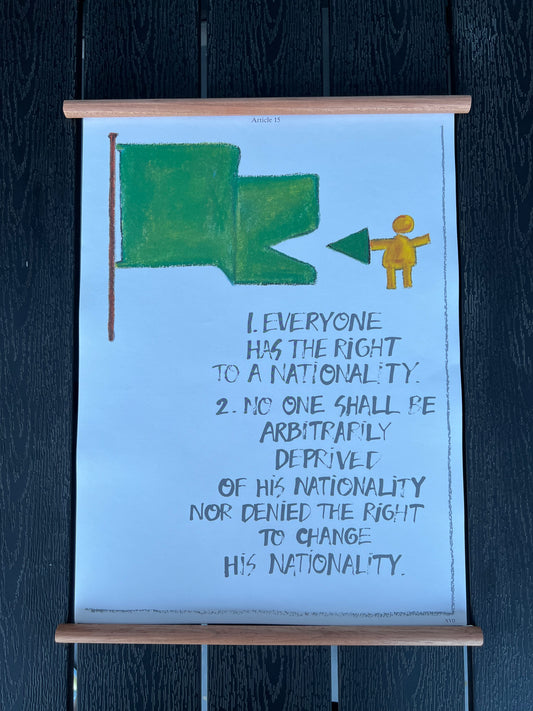 Article 15
1. EVERYONE
HAS THE RIGHT
TO A NATIONALITY.
2. NO ONE SHALL BE
ARBITRARILY
DEPRIVED
OF HIS NATIONALITY
NOR DENIED THE RIGHT
TO CHANGE
HIS NATIONALITY.